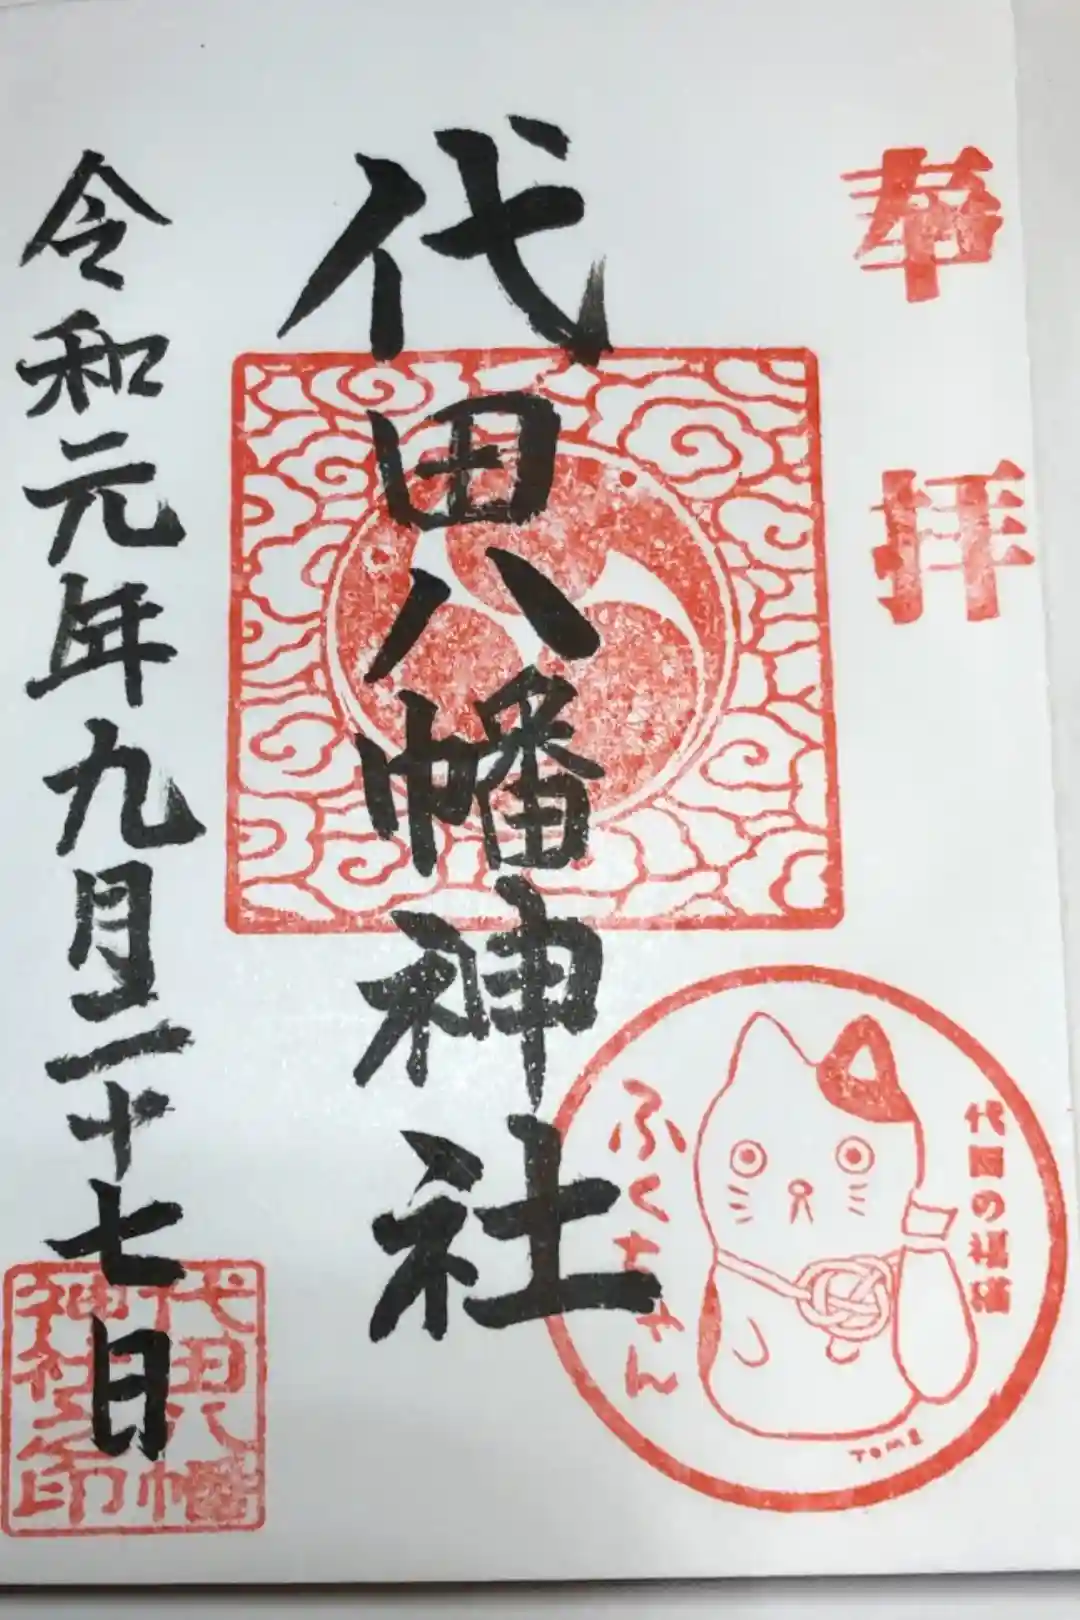 奉拝
代田八幡神社
令和元年九月二十七日
代田八幡
神社之印
代田の招福猫
ふくちゃん
TOME